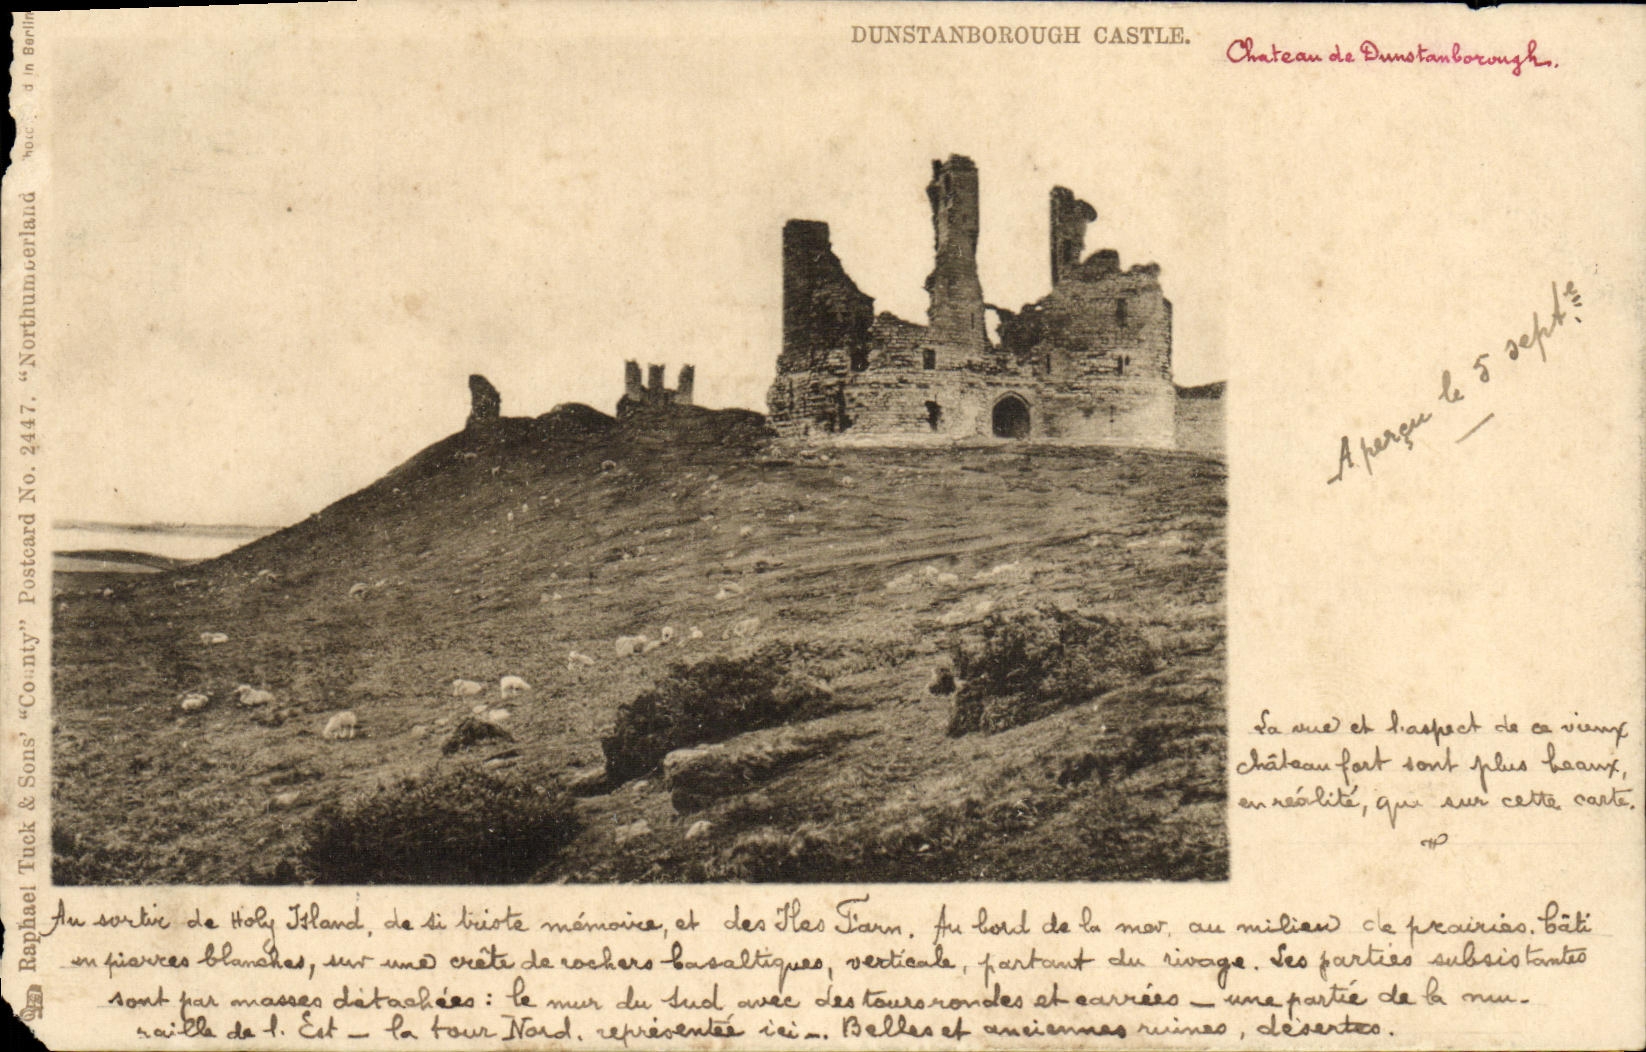 DUNSTANBOROUGH CASTLE.
Chateau de Dunstanborough.
Aperçu le 5 septe
La vue et l'aspect de ce vieux
château fort sont plus beaux,
en réalité, que sur cette carte.
Au sortir de Holy Island, de si triste mémoire, et des Iles Farn. Au bord de la mer, au milieu de prairies. bâti
en pierres blanches, sur une crête de rochers basaltiques, verticale, partant du rivage. Les parties subsistantes
sont par masses détachées : le mur du Sud avec des tours rondes et carrées — une partie de la mu-
raille de l'Est — la tour Nord, représentée ici —. Belles et anciennes ruines, désertes.
Raphael Tuck & Sons' "County" Postcard No. 2447. "Northumberland
d in Berlin